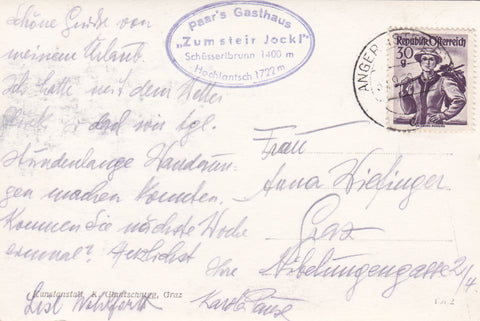 Schöne Grüße von
meinem Urlaub.
Ich hatte mit dem Wetter
Glück, so daß wir tgl.
stundenlange Wanderun-
gen machen konnten.
Kommen Sie nächste Woche
einmal? Herzlichst
Ihre
Paar's Gasthaus
„Zum steir Jockl"
Schüsserlbrunn 1400 m
Hochlantsch 1722 m
ANGER
Republik Österreich
30
g
Frau
Anna
Graz
Nibelungengasse 2/4
Kunstanstalt Graz